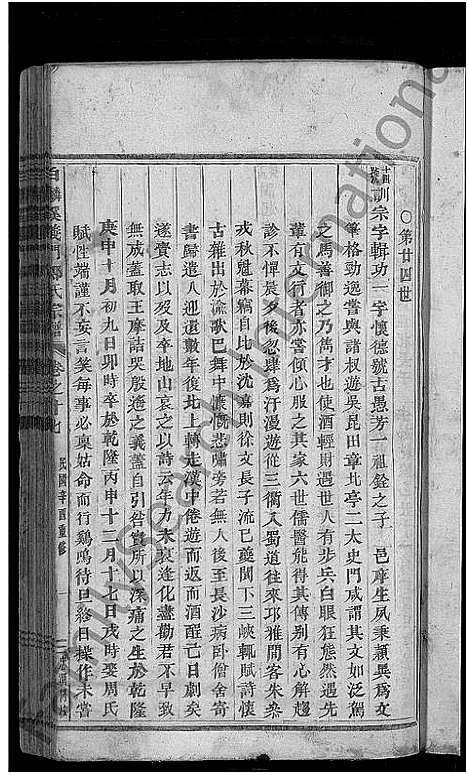 〇第廿四世
訓宗字輯功一字懷德號古愚芳一祖銓之子 邑庠生夙秉穎異為文
筆格勁逸嘗與諸叔遊吳昆田章比亭二太史門咸謂其文如泛駕
之馬善御之乃雋才也使酒輕財遇世人有步兵白眼狂態然遇先
輩有文行者亦嘗傾心服之其家六世儒醫能得其傳別有心解趨
診不憚晨夕後忽肆為汗漫遊從三衢入蜀道往來邛雅間客朱
戎秋魁幕竊自比於沈嘉則徐文長子流巴夔閬下三峽輒賦詩懷
古雜出於渝歌巴舞中慷慨悲嘯旁若無人後至長沙病臥僧舍寄
書歸遣人迎還數年後北上轉走漢中倦遊而返而酒酲已日劇矣
遂齎志以歿及卒地山哀之以詩云年力未衰逢化盡勸君不早致
無成蓋取王摩詰哭殷遙之義蓋自引咎實所以深痛之生於乾隆
庚申十月初九日卯時卒於乾隆丙申十二月十七日戌時娶周氏
賦性端謹不妄言笑每事必稟姑命而行鷄鳴待旦終日操作未嘗
白麟溪義門鄭氏宗譜 卷之十七 民國辛酉重修
Mysearch International